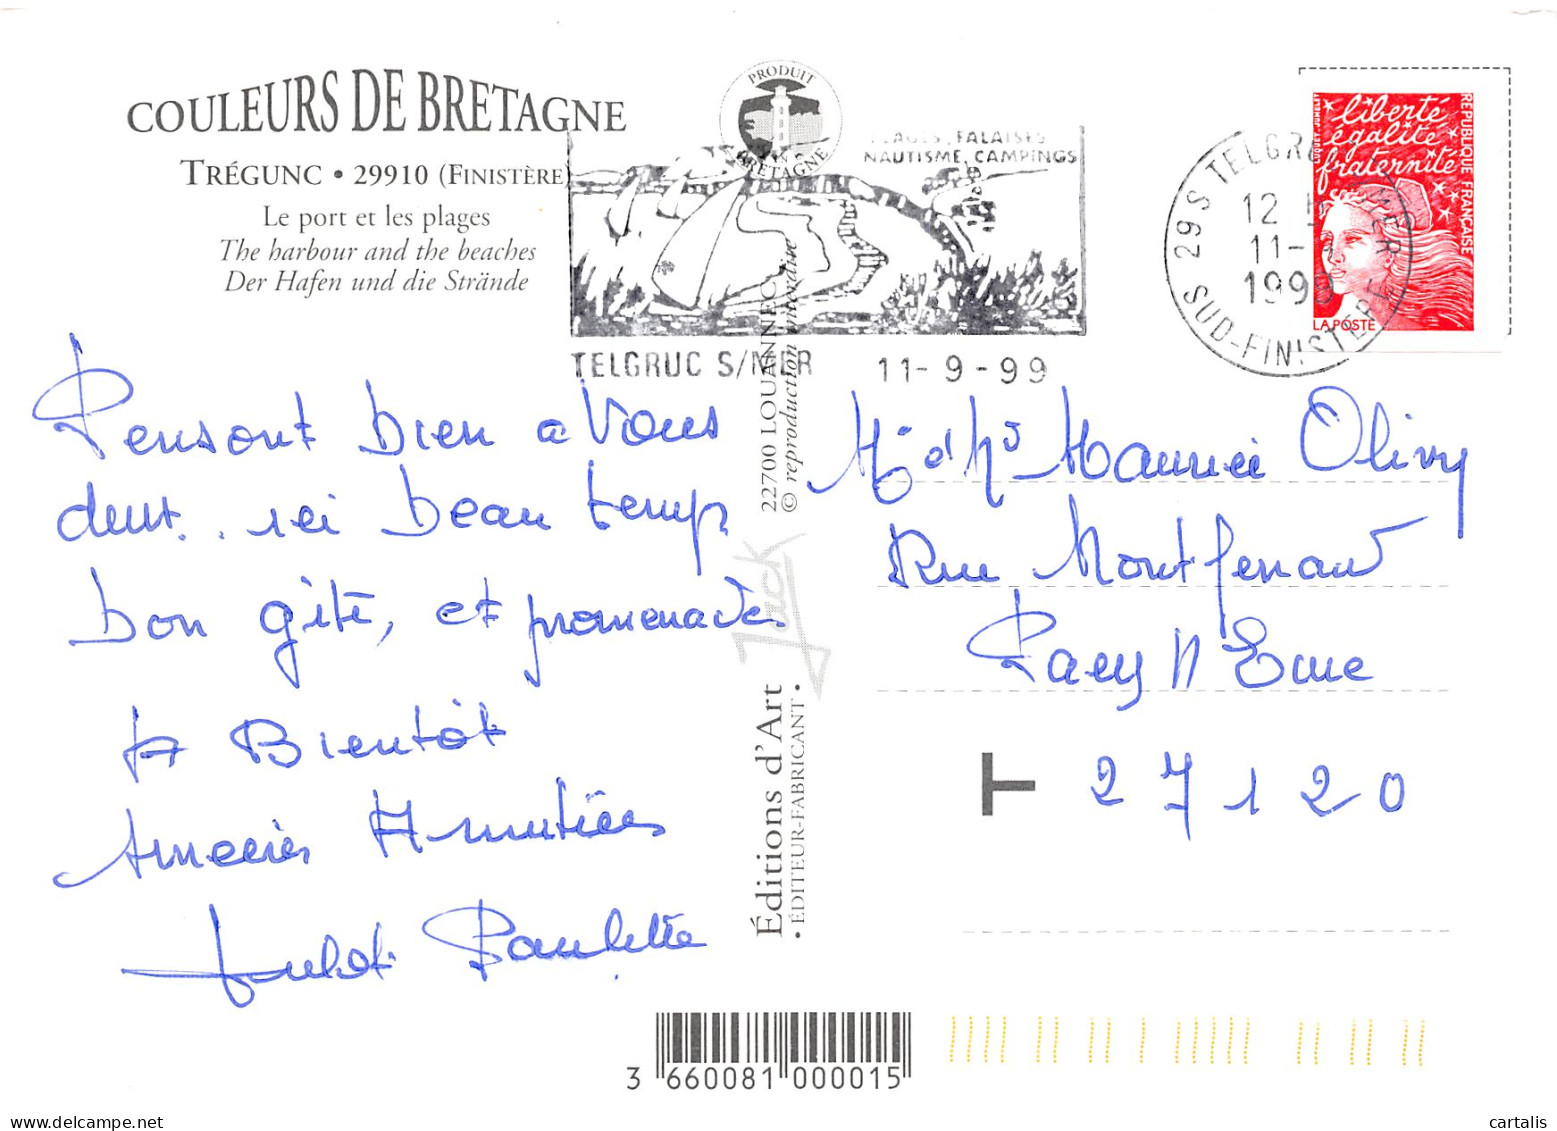 COULEURS DE BRETAGNE
TRÉGUNC • 29910 (FINISTÈRE)
Le port et les plages
The harbour and the beaches
Der Hafen und die Strände
PRODUIT
EN
BRETAGNE
PLAGES, FALAISES
NAUTISME, CAMPINGS
TELGRUC S/MER 11-9-99
29S TELGRUC MER
12 H
11-9
1999
SUD-FINISTERE
liberté
égalité
fraternité
REPUBLIQUE FRANÇAISE
LA POSTE
Pensont bien a Vous
deux.. ici beau temps
bon gîte, et promenades
A Bientôt
Amitiées
Paulette
Mr et Me Maurice Olivry
Rue Montferrand
Pacy s/ Eure
T 27120
22700 LOUANNEC
© reproduction interdite
Jack
Éditions d'Art
• ÉDITEUR-FABRICANT •
3 660081 000015
cartalis